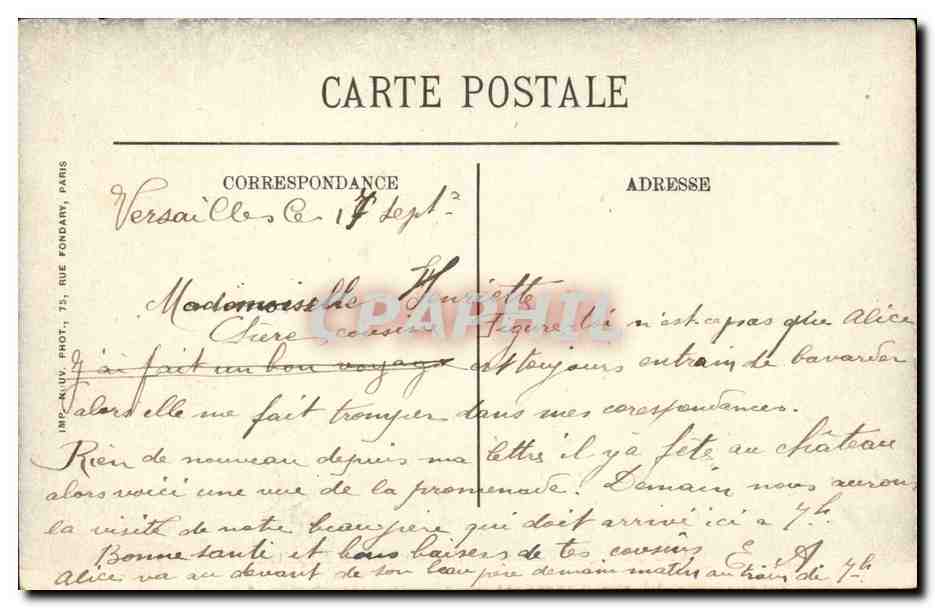 CARTE POSTALE
CORRESPONDANCE
ADRESSE
IMP. NOUV. PHOT., 75, RUE FONDARY, PARIS
Versailles le 17 sept
Mademoiselle Henriette
Chère cousine Figure toi n'est-ce pas que Alice
J'ai fait un bon voyage est toujours entrain de bavarder
alors elle me fait tromper dans mes corespondances.
Rien de nouveau depuis ma lettre il y à fête au château
alors voici une vue de la promenade. Demain nous aurons
la visite de notre beau père qui doit arrivé ici a 7h
Bonne santé et bons baisers de tes cousins E A
Alice va au devant de son beau père demain matin au train de 7h
CPAPHIL